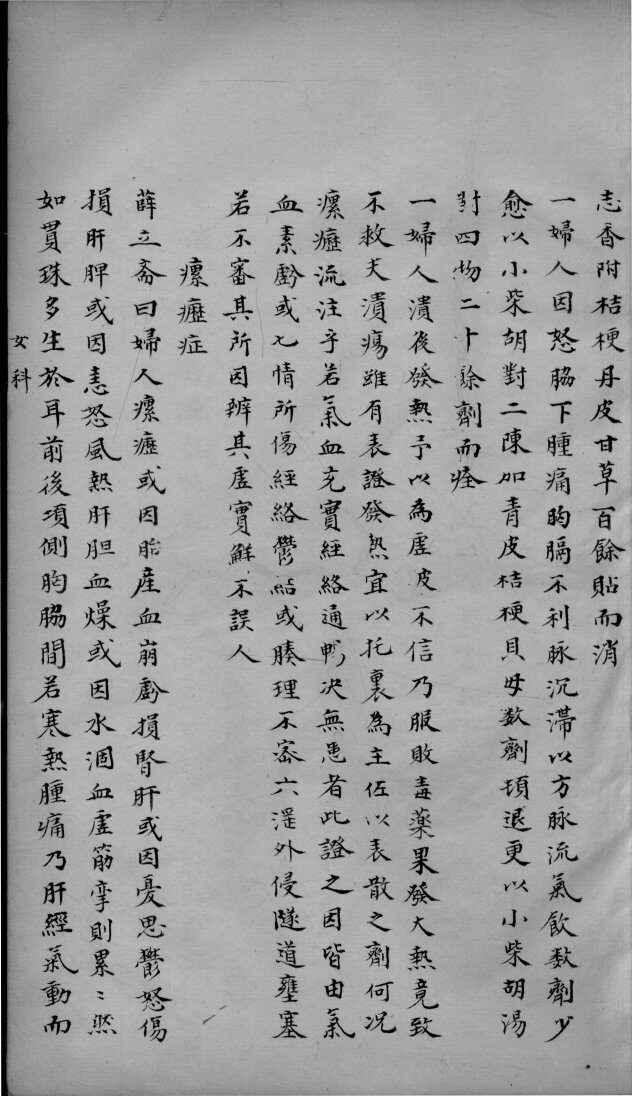 志香附桔梗丹皮甘草百餘貼而消
一婦人因怒脇下腫痛胸膈不利脉沉滯以方脉流氣飲数劑少
愈以小柴胡對二陳加青皮桔梗貝母数劑頓退更以小柴胡湯
對四物二十餘劑而痊
一婦人潰後發熱予以為虛皮不信乃服敗毒藥果發大熱竟致
不救夫潰瘍雖有表證發热宜以托裏為主佐以表散之劑何况
瘰癧流注乎若氣血充實經絡通暢决無患者此證之因皆由氣
血素虧或七情所傷經絡鬱結或腠理不密六淫外侵隧道壅塞
若不審其所因辨其虛實鮮不誤人
瘰癧症
薛立斋曰婦人瘰癧或因胎產血崩虧損腎肝或因憂思鬱怒傷
損肝脾或因恚怒風熱肝胆血燥或因水涸血虛筋挛則累〻然
如貫珠多生於耳前後項側胸脇間若寒熱腫痛乃肝經氣動而
女科